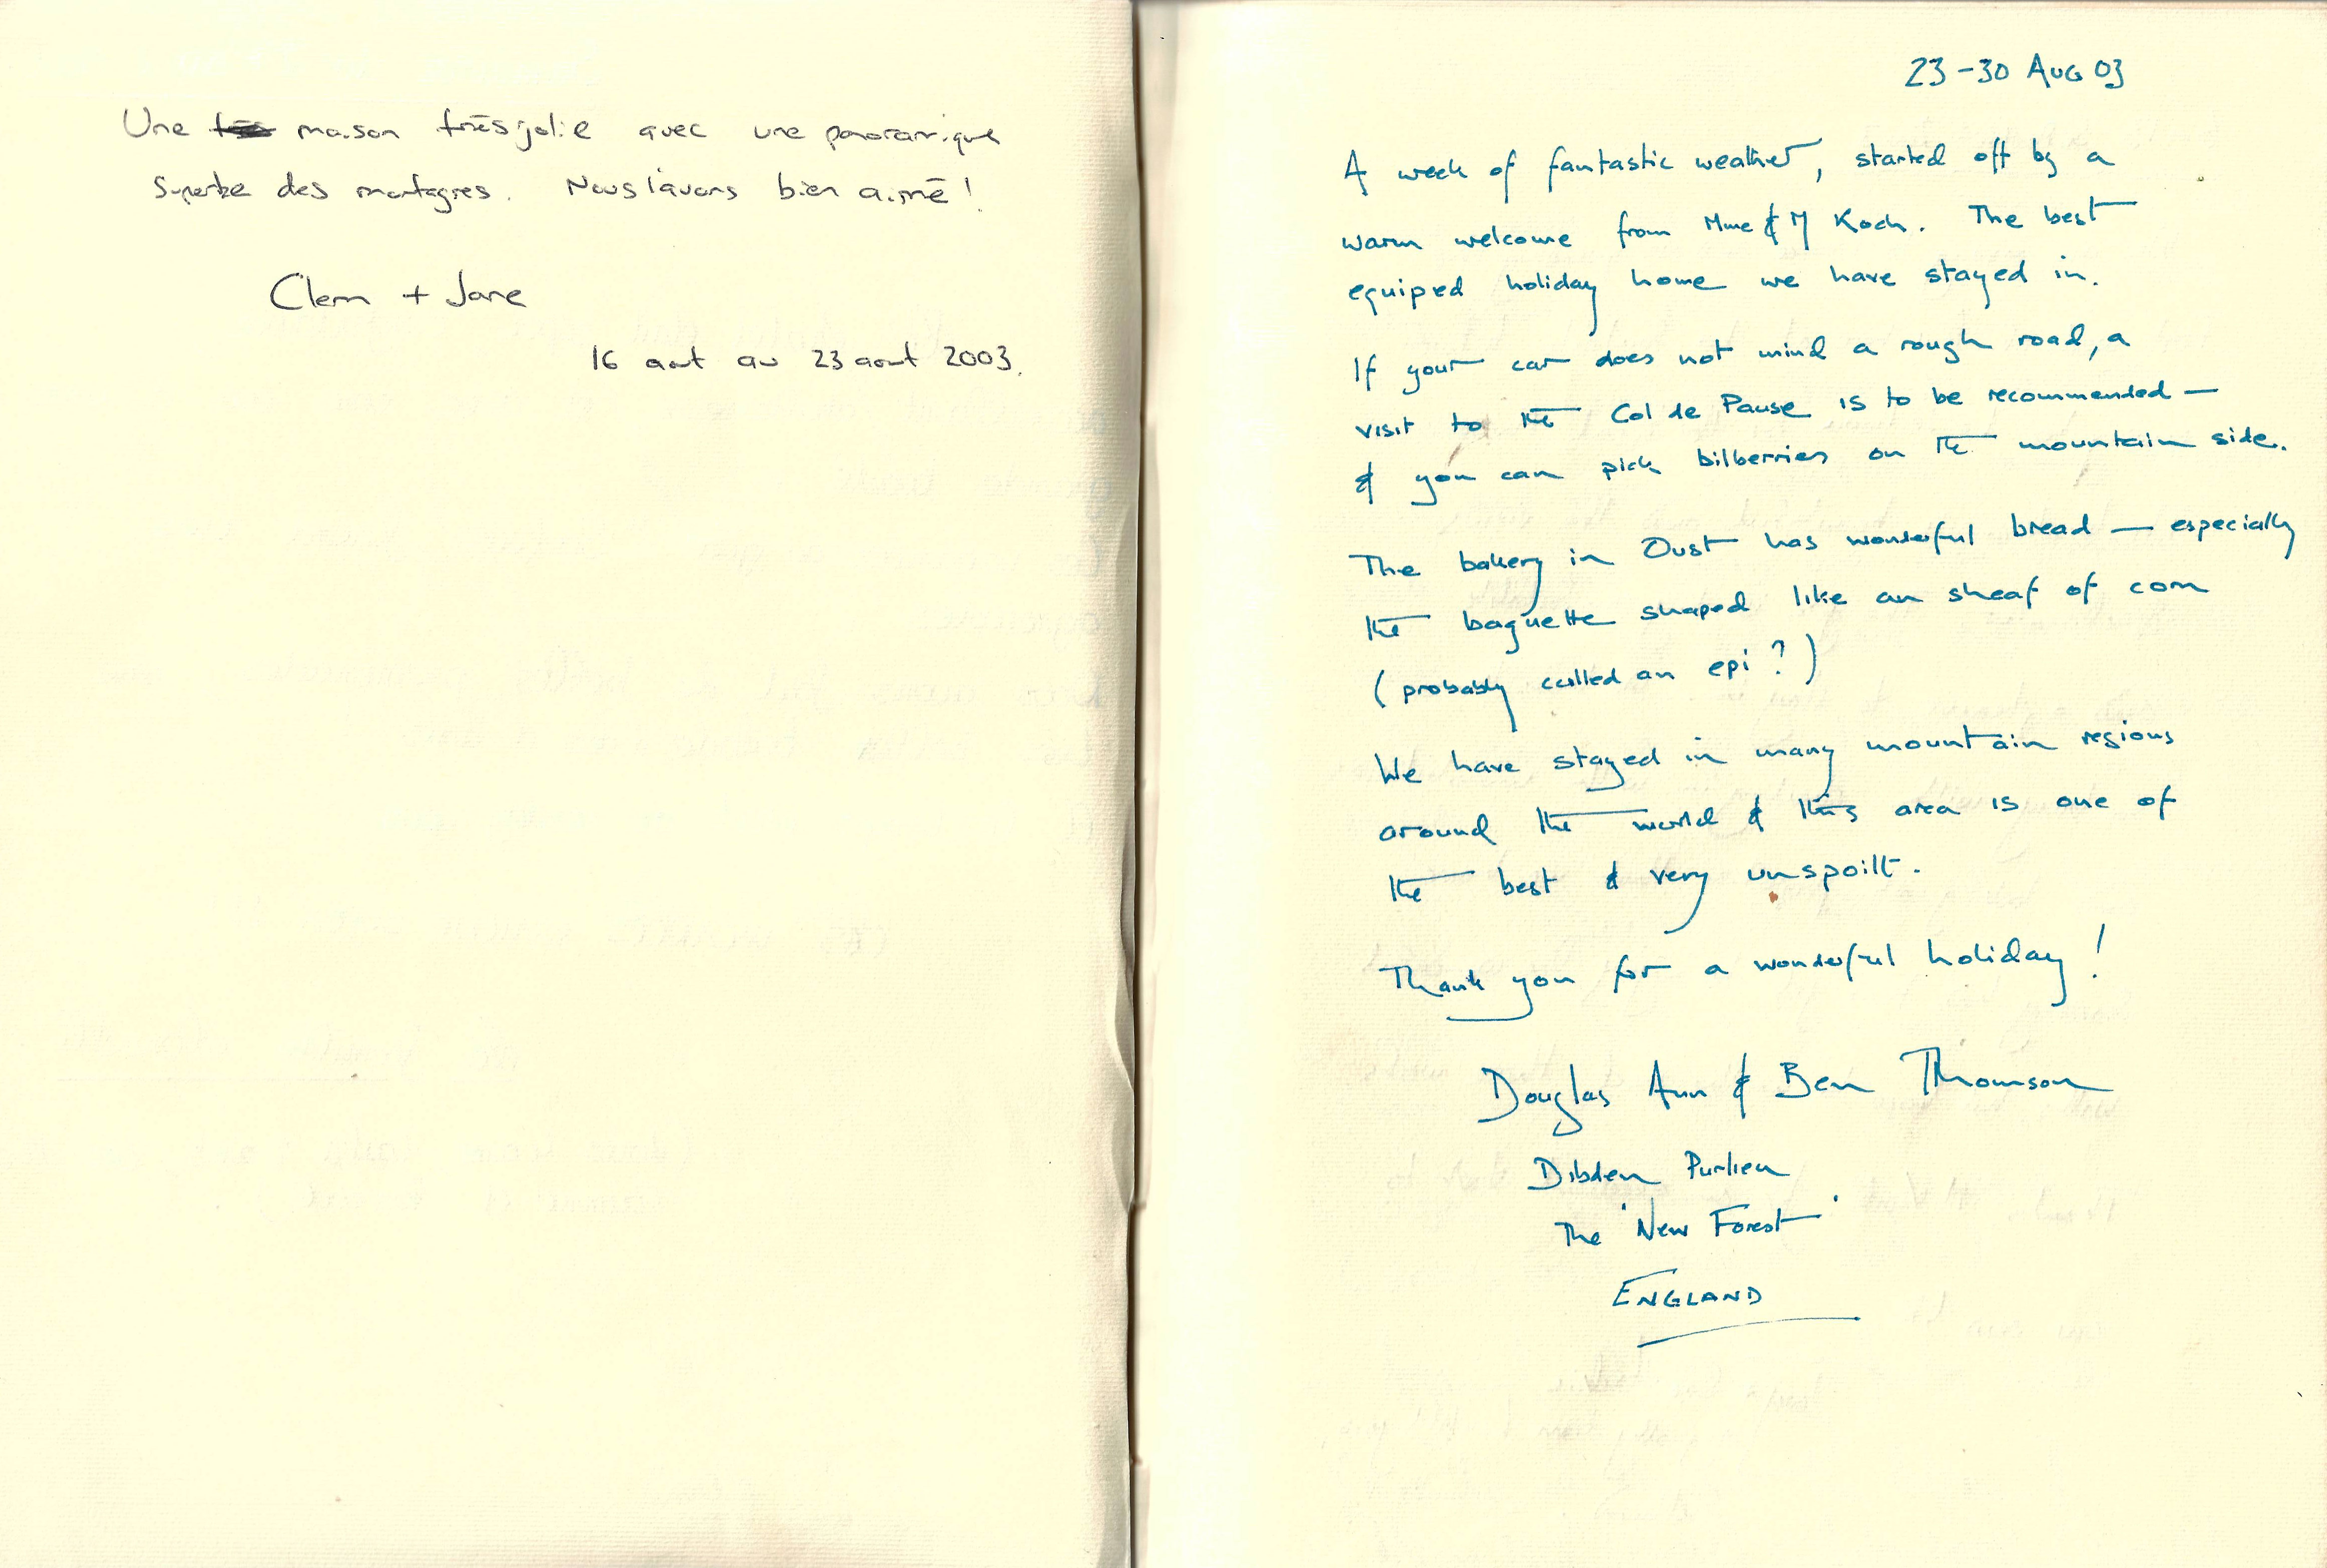 Une maison très jolie avec une panoramique
superbe des montagnes. Nous l'avons bien aimé!
Clem + Jane
16 aout au 23 aout 2003.
23-30 AUG 03
A week of fantastic weather, started off by a
warm welcome from Mme & M Koch. The best
equiped holiday home we have stayed in.
If your car does not mind a rough road, a
visit to the Col de Pause is to be recommended —
& you can pick bilberries on the mountain side.
The bakery in Oust has wonderful bread — especially
the baguette shaped like an sheaf of corn
(probably called an epi?)
We have stayed in many mountain regions
around the world & this area is one of
the best & very unspoilt.
Thank you for a wonderful holiday!
Douglas Ann & Ben Thomson
Dibden Purlieu
The 'New Forest'
ENGLAND